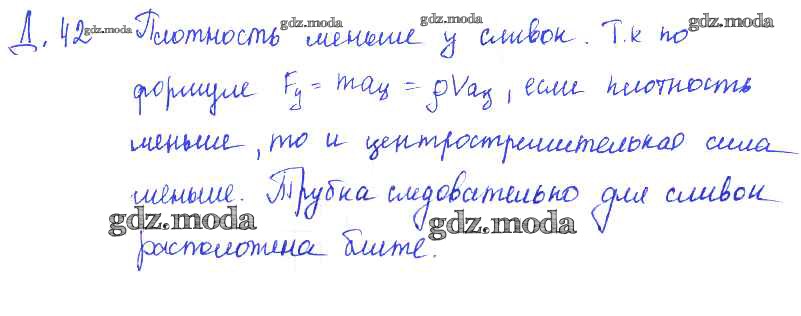 Д. 42 gdz.moda Плотность gdz.moda меньше gdz.moda у сливок. Т.к gdz.moda по
формуле Fц = maц = ρVaц, если плотность
меньше, то и центростремительная сила
меньше. Трубка следовательно для сливок
gdz.moda gdz.moda
расположена ближе.